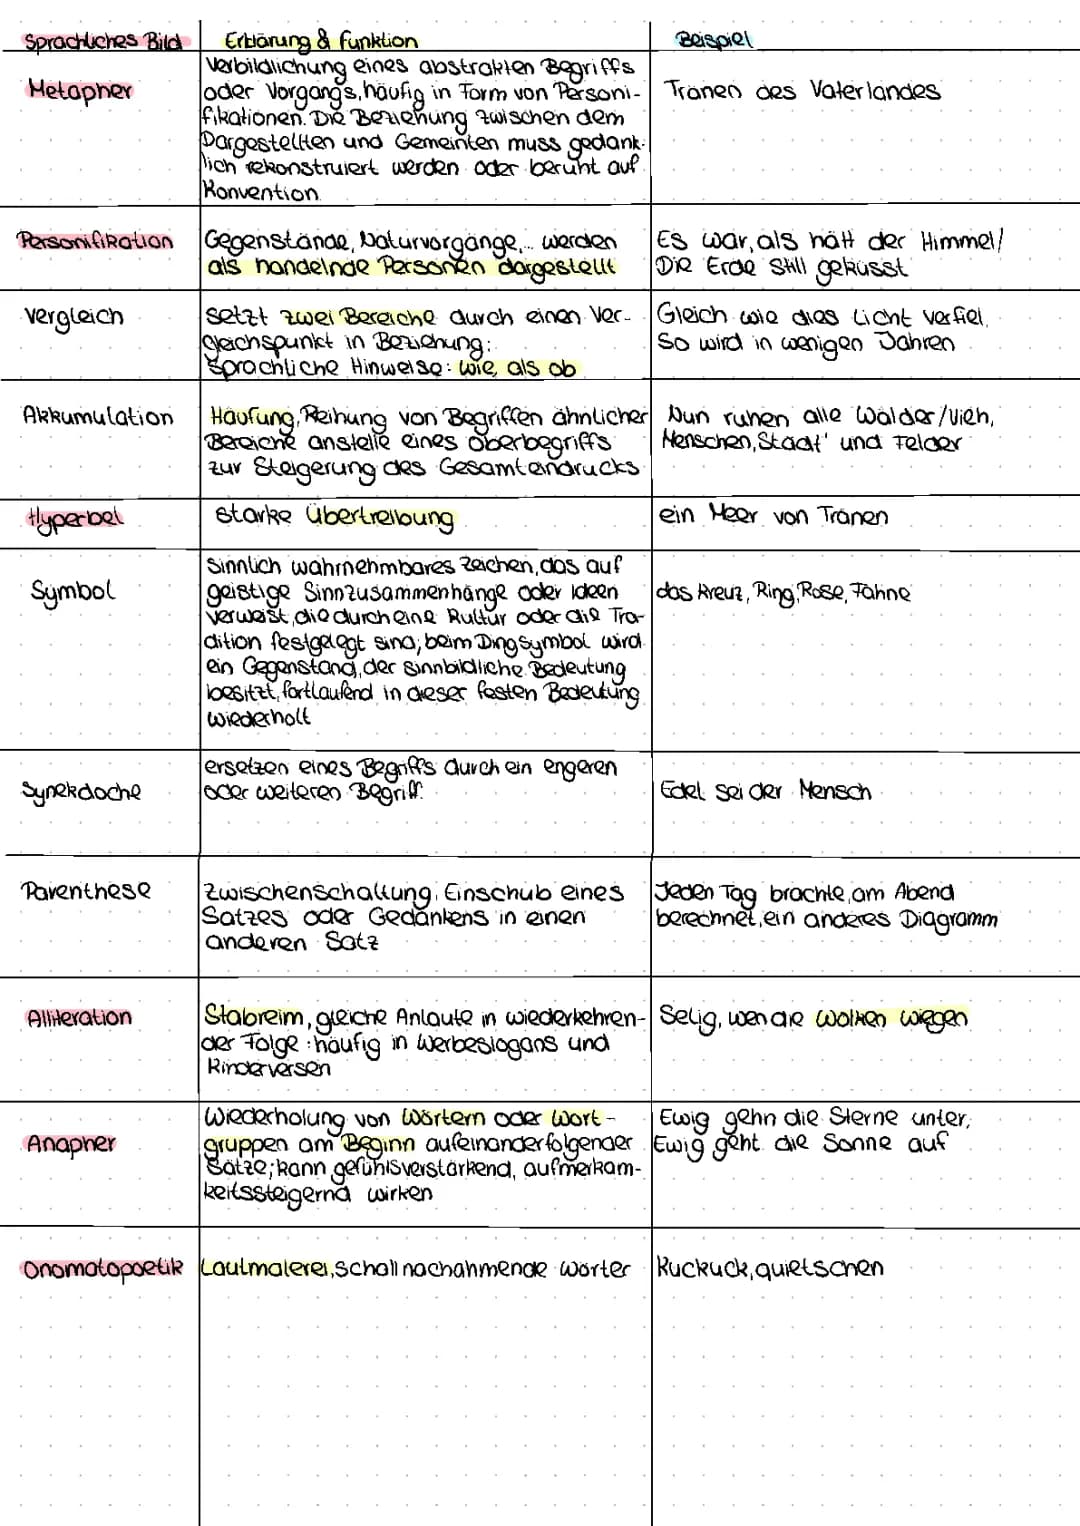 Sprachliches Bild Erklärung & Funktion Beispiel
Metapher
Verbildlichung eines abstrakten Begriffs
oder Vorgangs, häufig in Form von Personi-
fikationen. Die Beziehung zwischen dem
Dargestellten und Gemeinten muss gedank-
lich rekonstruiert werden oder beruht auf
Konvention
Tränen des Vaterlandes
Personifikation
Gegenstände, Naturvorgänge,... werden
als handelnde Personen dargestellt
Es war, als hätt der Himmel/
Die Erde still geküsst
Vergleich
setzt zwei Bereiche durch einen Ver-
gleichspunkt in Beziehung;
Sprachliche Hinweise: wie, als ob
Gleich wie dies Licht verfiel,
So wird in wenigen Jahren
Akkumulation
Häufung, Reihung von Begriffen ähnlicher
Bereiche anstelle eines Oberbegriffs
zur Steigerung des Gesamteindrucks
Nun ruhen alle Wälder/Vieh,
Menschen, Stadt' und Felder
Hyperbel
starke Übertreibung
ein Meer von Tränen
Symbol
Sinnlich wahrnehmbares Zeichen, das auf
geistige Sinnzusammenhänge oder Ideen
verweist, die durch eine Kultur oder die Tra-
dition festgelegt sind; beim Dingsymbol wird
ein Gegenstand, der sinnbildliche Bedeutung
besitzt, fortlaufend in dieser festen Bedeutung
wiederholt
das Kreuz, Ring, Rose, Fahne
Synekdoche
ersetzen eines Begriffs durch ein engeren
oder weiteren Begriff.
Edel sei der Mensch
Parenthese
Zwischenschaltung, Einschub eines
Satzes oder Gedankens in einen
anderen Satz
Jeden Tag brachte, am Abend
berechnet, ein anderes Diagramm
Alliteration
Stabreim, gleiche Anlaute in wiederkehren-
der Folge: häufig in Werbeslogans und
Kinderversen
Selig, wen die Wolken wiegen
Anapher
Wiederholung von Wörtern oder Wort-
gruppen am Beginn aufeinanderfolgender
Sätze; kann gefühlsverstärkend, aufmerkam-
keitssteigernd wirken
Ewig gehn die Sterne unter,
Ewig geht die Sonne auf
Onomatopoetik
Lautmalerei, schall nachahmende Wörter
Kuckuck, quietschen